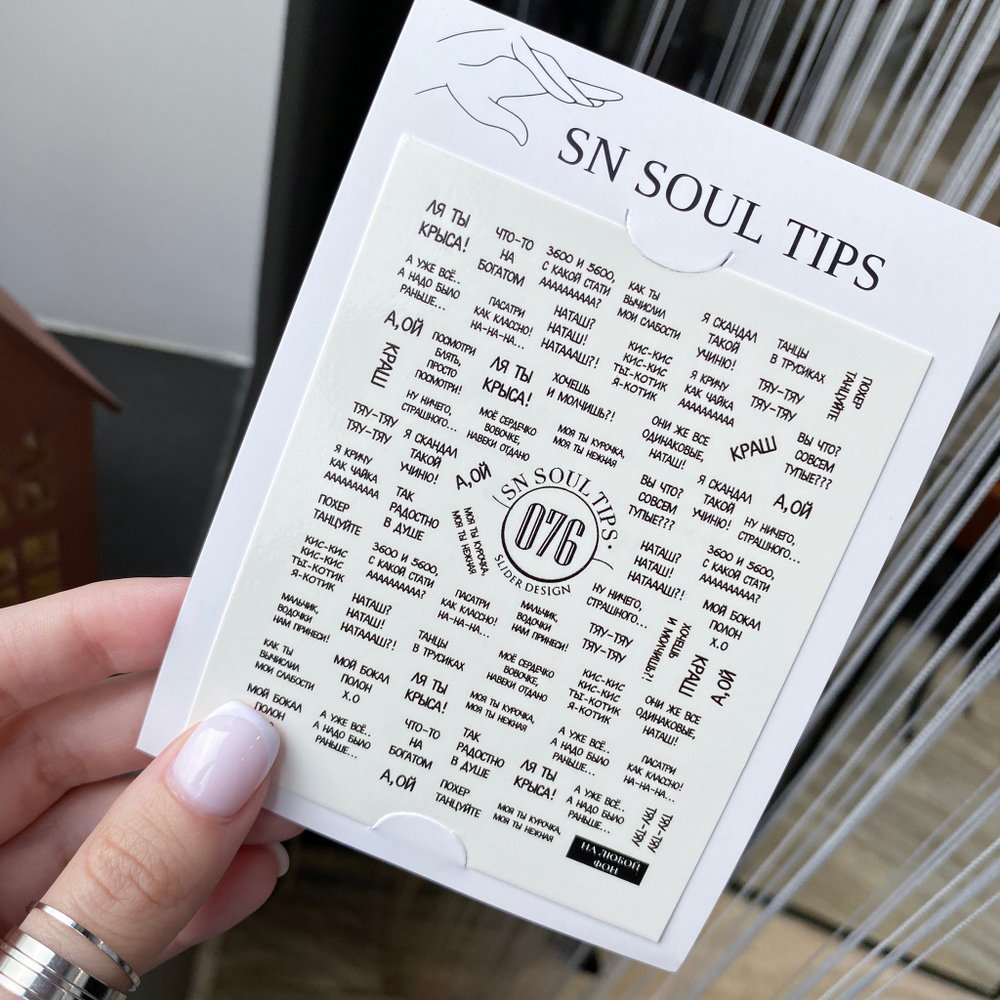 SN SOUL TIPS
ЛЯ ТЫ
КРЫСА!
ЧТО-ТО
НА
БОГАТОМ
3600 И 5600,
С КАКОЙ СТАТИ
АААААААААА?
КАК ТЫ
ВЫЧИСЛИЛ
МОИ СЛАБОСТИ
Я СКАНДАЛ
ТАКОЙ
УЧИНЮ!
ТАНЦЫ
В ТРУСИКАХ
ПОХЕР
ТАНЦУЙТЕ
А УЖЕ ВСЁ..
А НАДО БЫЛО
РАНЬШЕ...
ПАСАТРИ
КАК КЛАССНО!
НА-НА-НА...
НАТАШ?
НАТАШ!
НАТАААШ?!
КИС-КИС
КИС-КИС
ТЫ-КОТИК
Я-КОТИК
Я КРИЧУ
КАК ЧАЙКА
ААААААААА
ТЯУ-ТЯУ
ТЯУ-ТЯУ
А,ОЙ
КРАШ
ПОСМОТРИ
БЛЯТЬ,
ПРОСТО
ПОСМОТРИ!
ЛЯ ТЫ
КРЫСА!
ХОЧЕШЬ
И МОЛЧИШЬ?!
ОНИ ЖЕ ВСЕ
ОДИНАКОВЫЕ,
НАТАШ!
КРАШ
ВЫ ЧТО?
СОВСЕМ
ТУПЫЕ???
ТЯУ-ТЯУ
ТЯУ-ТЯУ
НУ НИЧЕГО,
СТРАШНОГО...
МОЁ СЕРДЕЧКО
ВОВОЧКЕ,
НАВЕКИ ОТДАНО
МОЯ ТЫ КУРОЧКА,
МОЯ ТЫ НЕЖНАЯ
Я КРИЧУ
КАК ЧАЙКА
ААААААААА
Я СКАНДАЛ
ТАКОЙ
УЧИНЮ!
А,ОЙ
SN SOUL TIPS
076
SLIDER DESIGN
ВЫ ЧТО?
СОВСЕМ
ТУПЫЕ???
Я СКАНДАЛ
ТАКОЙ
УЧИНЮ!
А,ОЙ
НУ НИЧЕГО,
СТРАШНОГО...
ПОХЕР
ТАНЦУЙТЕ
ТАК
РАДОСТНО
В ДУШЕ
МОЯ ТЫ КУРОЧКА,
МОЯ ТЫ НЕЖНАЯ
НАТАШ?
НАТАШ!
НАТАААШ?!
3600 И 5600,
С КАКОЙ СТАТИ
АААААААААА?
КИС-КИС
КИС-КИС
ТЫ-КОТИК
Я-КОТИК
3600 И 5600,
С КАКОЙ СТАТИ
АААААААААА?
ПАСАТРИ
КАК КЛАССНО!
НА-НА-НА...
МАЛЬЧИК,
ВОДОЧКИ
НАМ ПРИНЕСИ!
НУ НИЧЕГО,
СТРАШНОГО...
ТЯУ-ТЯУ
ТЯУ-ТЯУ
ХОЧЕШЬ
И МОЛЧИШЬ?!
МОЙ БОКАЛ
ПОЛОН
Х.О
КРАШ
А,ОЙ
МАЛЬЧИК,
ВОДОЧКИ
НАМ ПРИНЕСИ!
НАТАШ?
НАТАШ!
НАТАААШ?!
ТАНЦЫ
В ТРУСИКАХ
МОЁ СЕРДЕЧКО
ВОВОЧКЕ,
НАВЕКИ ОТДАНО
КИС-КИС
КИС-КИС
ТЫ-КОТИК
Я-КОТИК
ОНИ ЖЕ ВСЕ
ОДИНАКОВЫЕ,
НАТАШ!
КАК ТЫ
ВЫЧИСЛИЛ
МОИ СЛАБОСТИ
МОЙ БОКАЛ
ПОЛОН
Х.О
ЛЯ ТЫ
КРЫСА!
МОЯ ТЫ КУРОЧКА,
МОЯ ТЫ НЕЖНАЯ
А УЖЕ ВСЁ..
А НАДО БЫЛО
РАНЬШЕ...
ПАСАТРИ
КАК КЛАССНО!
НА-НА-НА...
МОЙ БОКАЛ
ПОЛОН
А УЖЕ ВСЁ..
А НАДО БЫЛО
РАНЬШЕ...
ЧТО-ТО
НА
БОГАТОМ
ТАК
РАДОСТНО
В ДУШЕ
ЛЯ ТЫ
КРЫСА!
А УЖЕ ВСЁ..
А НАДО БЫЛО
РАНЬШЕ...
ТЯУ-ТЯУ
ТЯУ-ТЯУ
А,ОЙ
ПОХЕР
ТАНЦУЙТЕ
МОЯ ТЫ КУРОЧКА,
МОЯ ТЫ НЕЖНАЯ
НА ЛЮБОЙ
ФОН